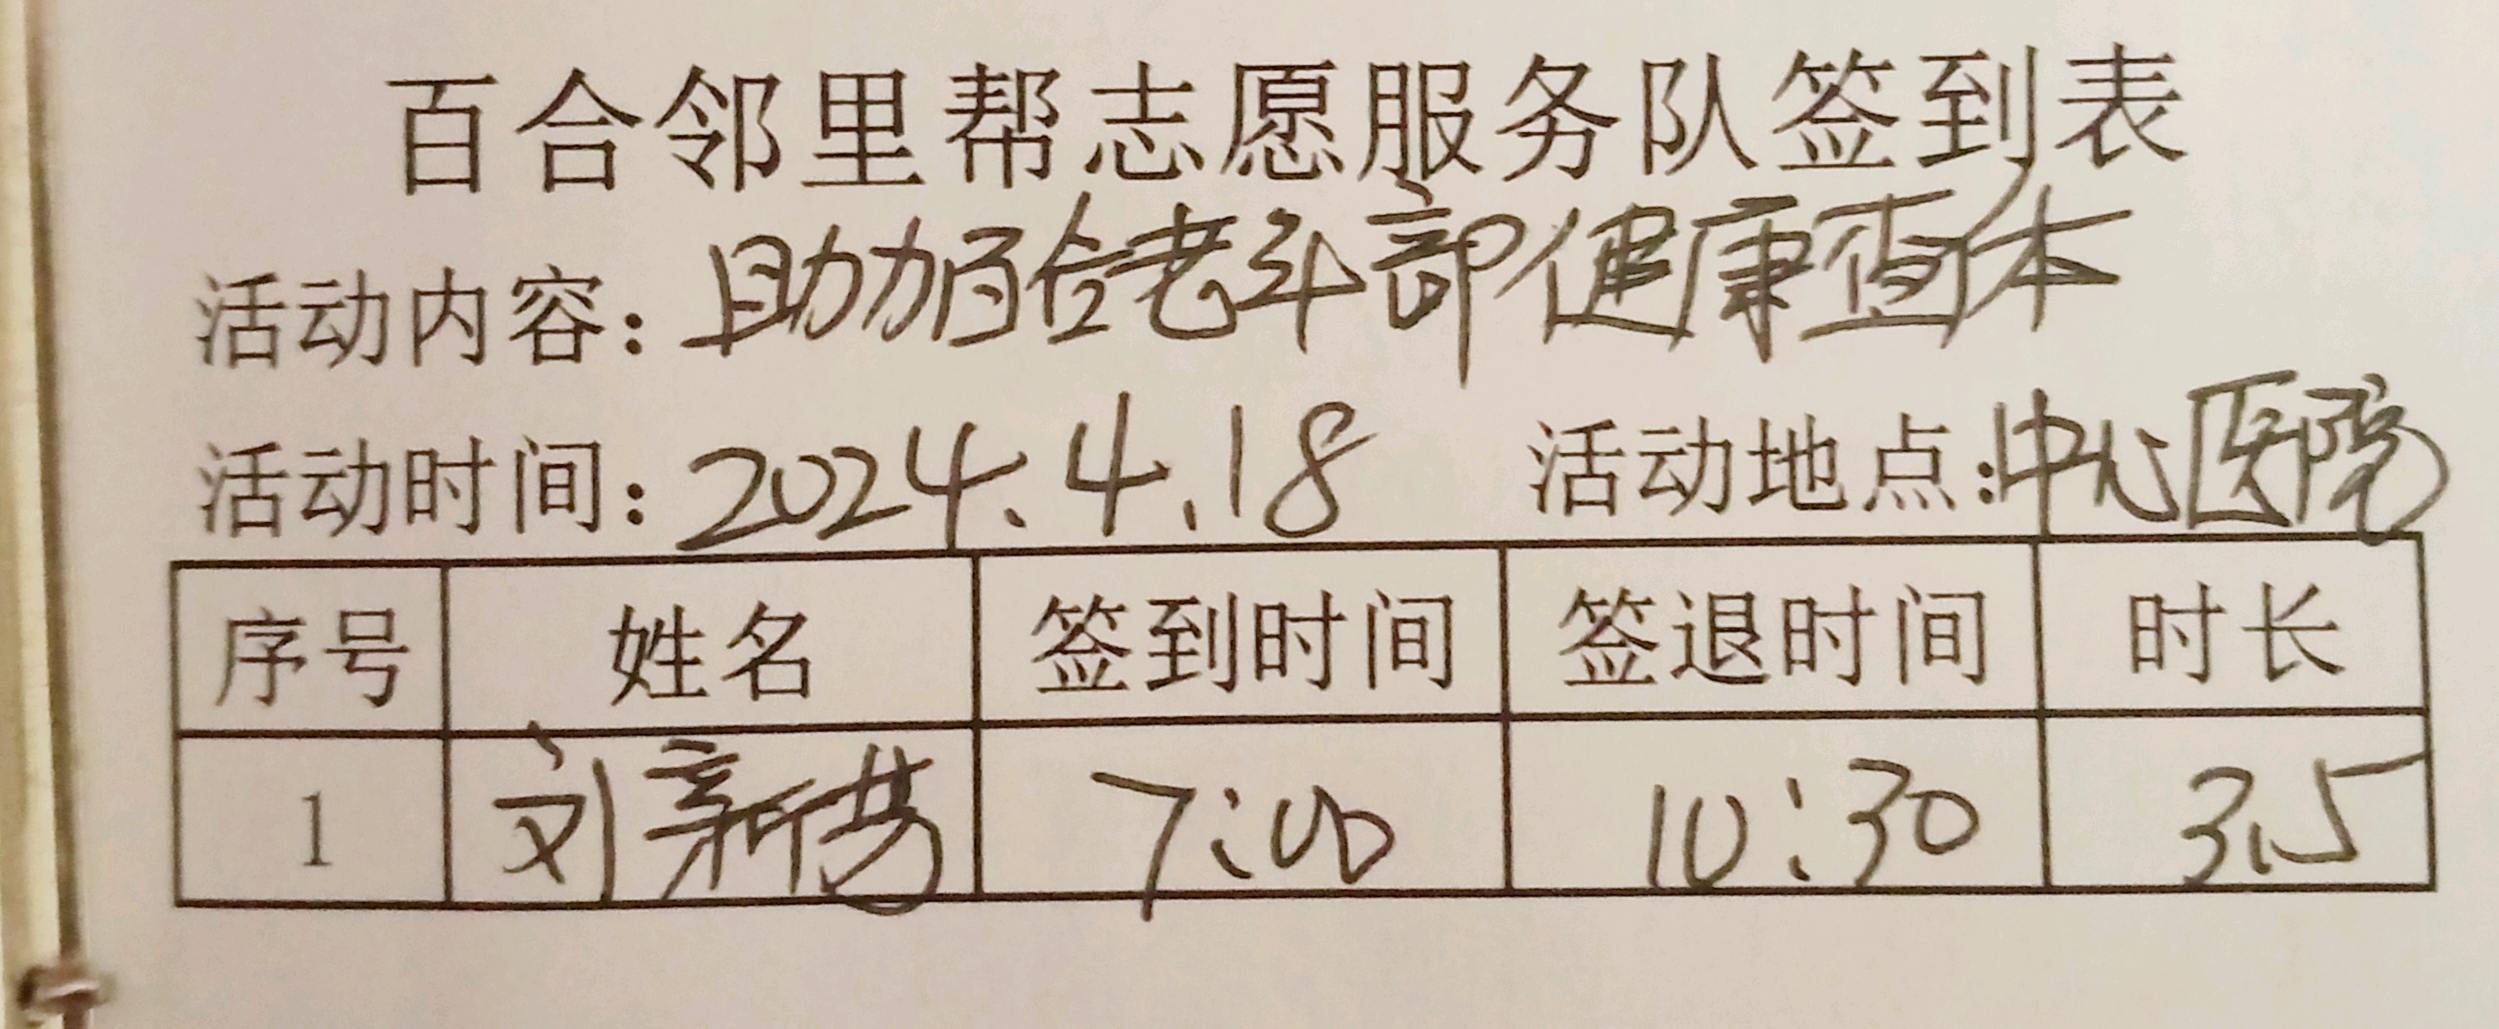 百合邻里帮志愿服务队签到表
活动内容：助力百合老年部健康查体
活动时间：2024.4.18 活动地点：中心医院
序号 姓名 签到时间 签退时间 时长
1 刘新 7:00 10:30 3.5